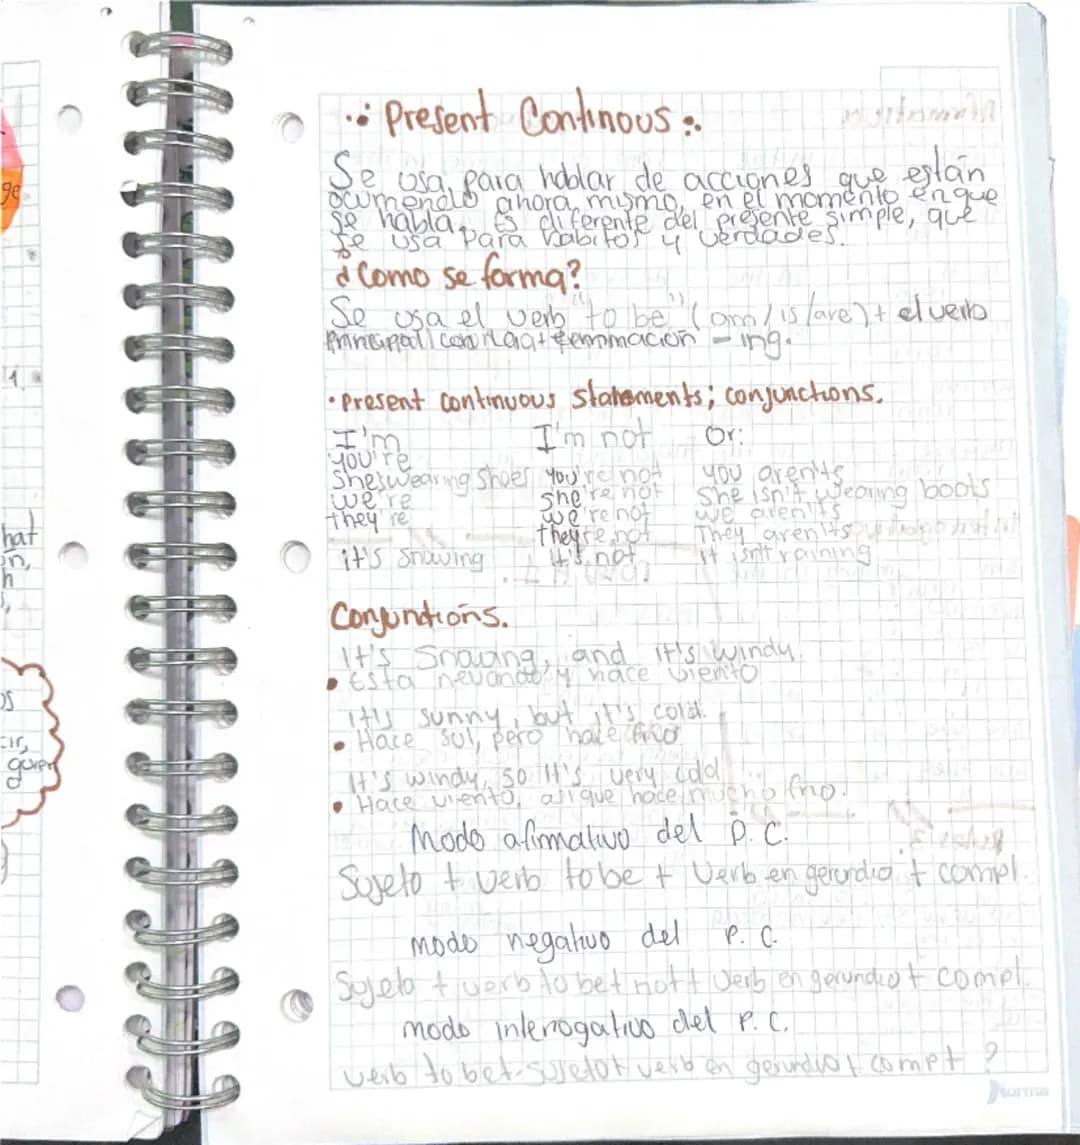 Present Continous
Se usa para hablar de acciones que están
ocurriendo ahora mismo, en el momento en que
se habla. Es diferente del presente simple, que
se usa para habitos y verdades.
¿Como se forma?
Se usa el verb "to be" (am/is/are) + el verb
principal con la terminación -ing.
• Present continuous statements; conjunctions.
I'm I'm not Or:
you're
She's wearing shoes you're not you aren't
we're she're not She isn't wearing boots
they're we're not we aren't
they're not They aren't
it's snowing it's not it isn't raining
Conjuntions.
It's Snowing, and it's windy
• Esta nevando y hace viento
It's sunny, but it's cold.
• Hace sol, pero hace frio
It's windy, so it's very cold
• Hace viento, asi que hace mucho frio.
Modo afirmativo del P.C.
Sujeto + verb to be + Verb en gerundio + compl.
modo negativo del P.C.
Sujeto + verb to be + not + Verb en gerundio + compl.
modo interogativo del P.C.
verb to be + sujeto + verb en gerundio + compt ?
norma
ge
1.
hat
on,
h
s,
os
cir,